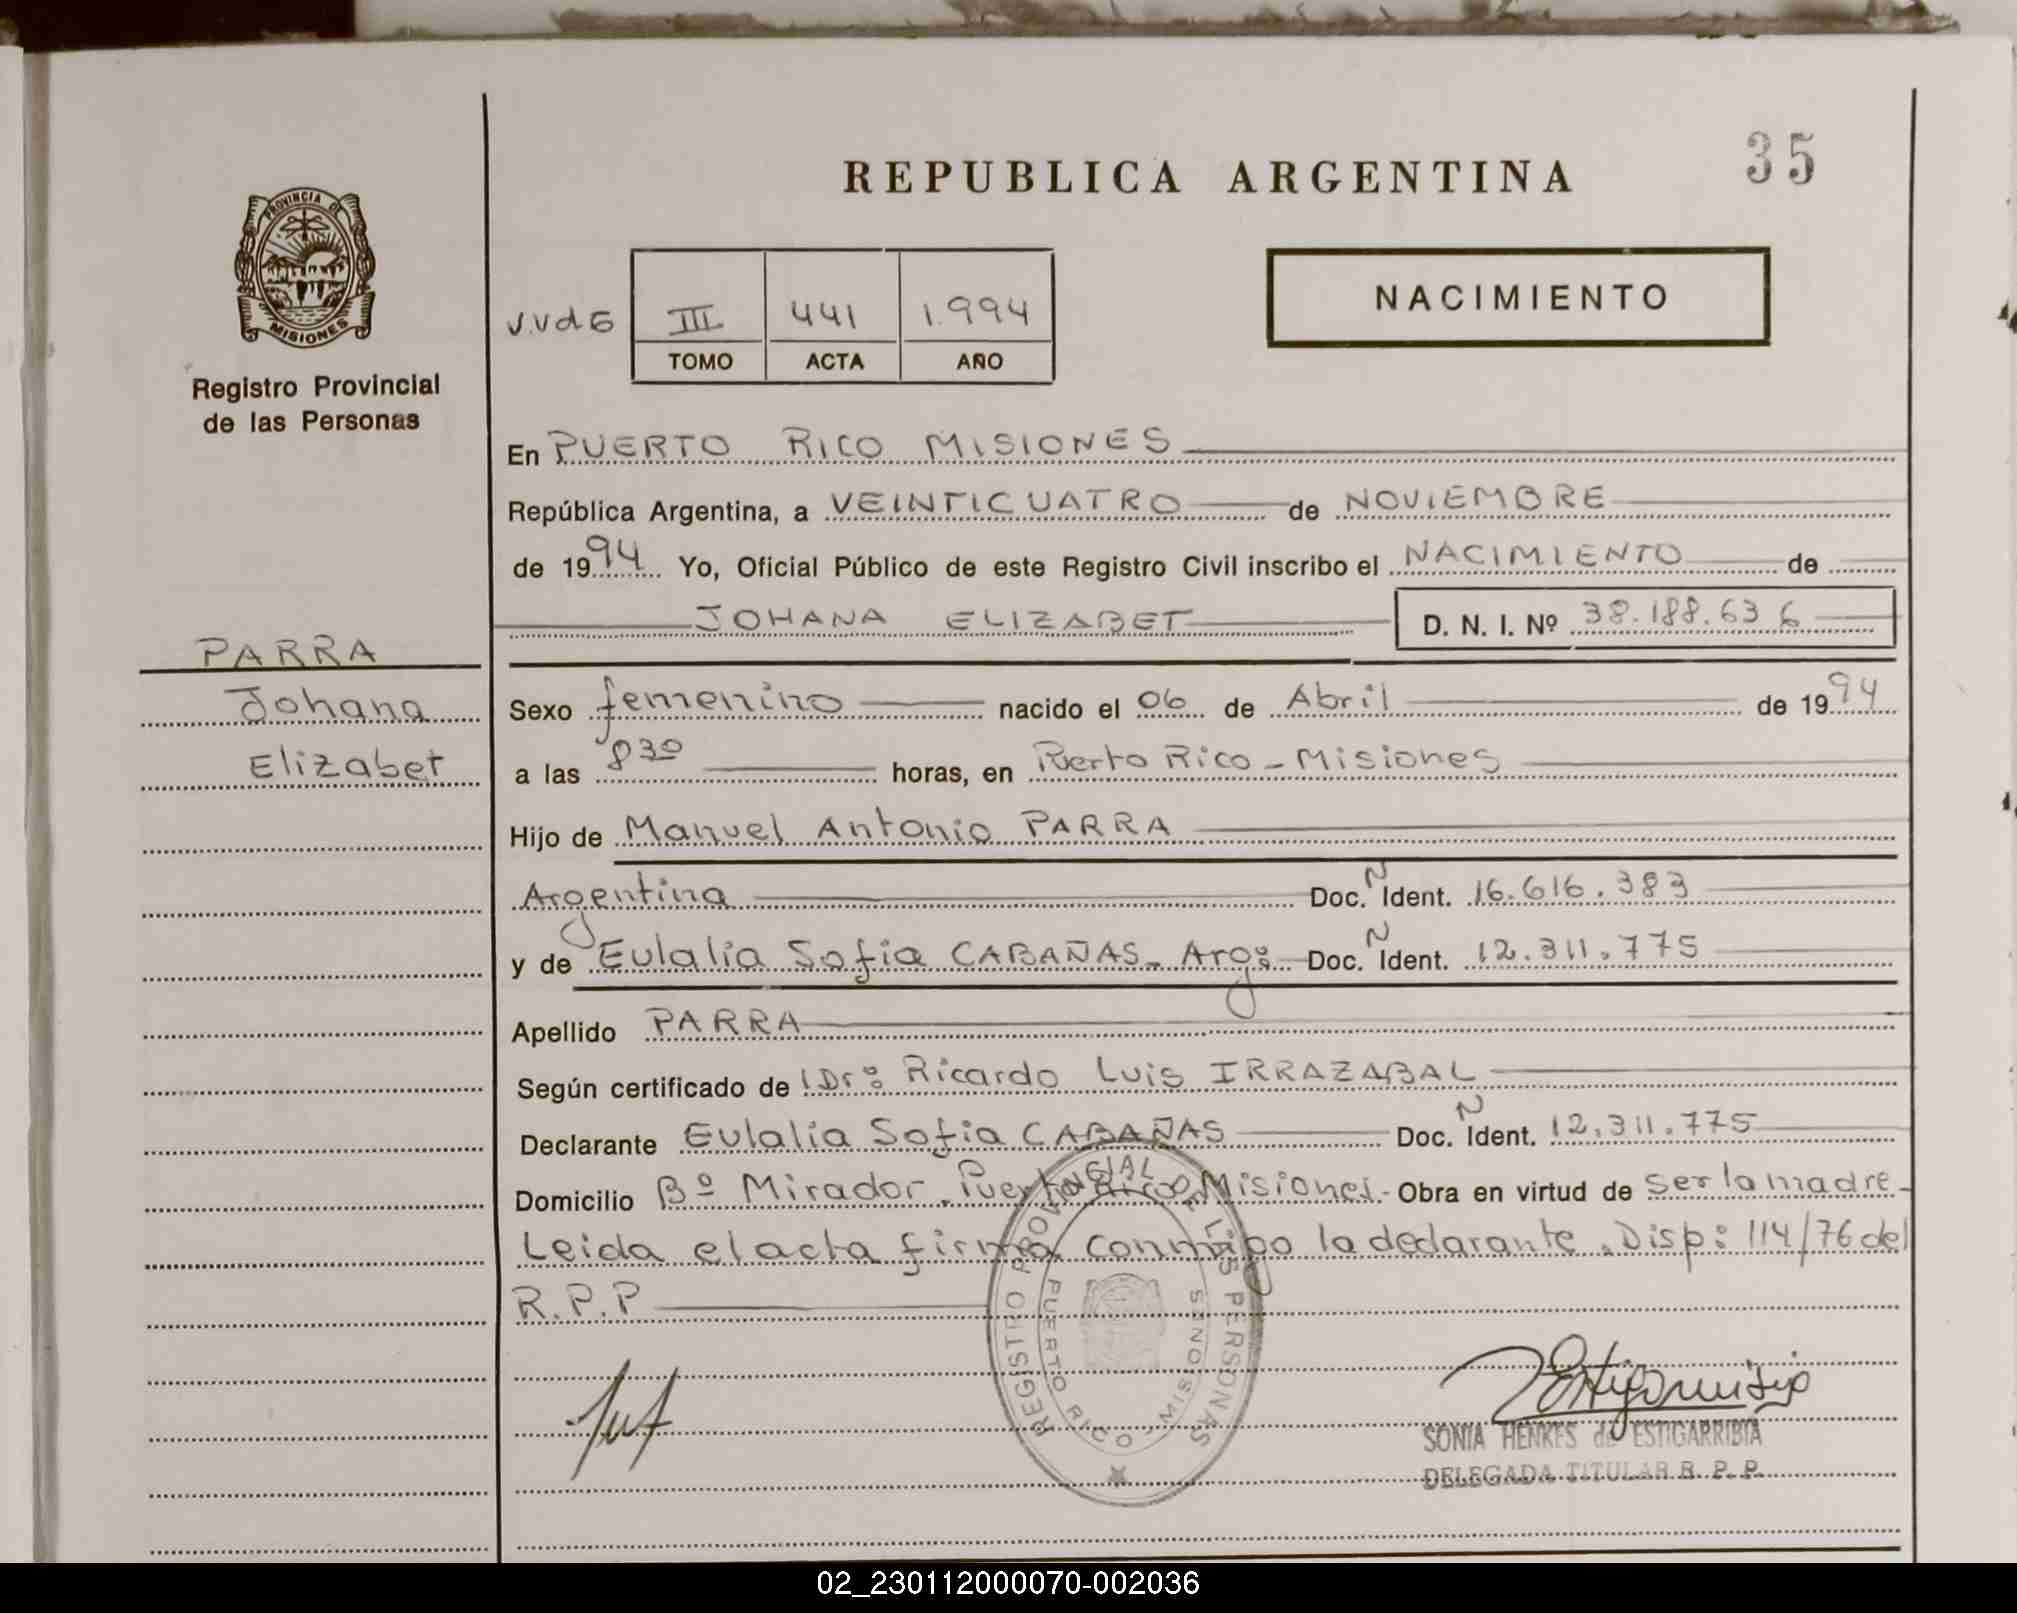 REPUBLICA ARGENTINA
35
PROVINCIA DE
MISIONES
Registro Provincial
de las Personas
V.V d G
III 441 1.994
TOMO ACTA AÑO
NACIMIENTO
En PUERTO RICO MISIONES
República Argentina, a VEINTICUATRO de NOVIEMBRE
de 1994 Yo, Oficial Público de este Registro Civil inscribo el NACIMIENTO de
JOHANA ELIZABET D. N. I. Nº 38.188.636
PARRA
Johana
Elizabet
Sexo femenino nacido el 06 de Abril de 1994
a las 8 30 horas, en Puerto Rico - Misiones
Hijo de Manuel Antonio PARRA
Argentina Doc. N Ident. 16.616.383
y de Eulalia Sofia CABAÑAS - Arg: Doc. N Ident. 12.311.775
Apellido PARRA
Según certificado de Dr: Ricardo Luis IRRAZABAL
Declarante Eulalia Sofia CABAÑAS Doc. N Ident. 12.311.775
Domicilio Bº Mirador - Puerto Rico Misiones - Obra en virtud de ser la madre -
Leida el acta firma conmigo la declarante. Disp: 114/76 del
R.P.P
REGISTRO PROVINCIAL DE LAS PERSONAS
PUERTO RICO MISIONES
SONIA HENKES de ESTIGARRIBIA
DELEGADA TITULAR R. P. P.
02_230112000070-002036